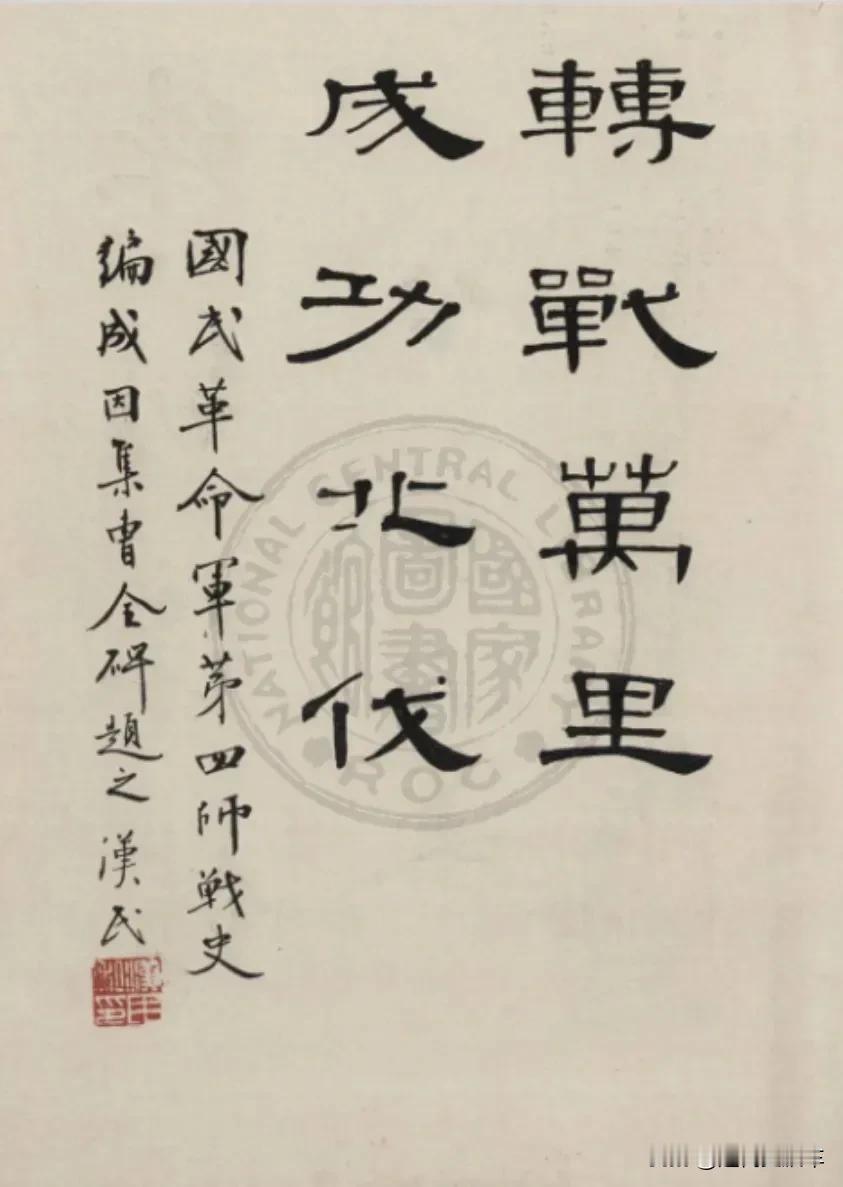 轉戰萬里
成功北伐
國民革命軍第四師戰史
編成因集曹全碑題之 漢民
NATIONAL CENTRAL LIBRARY
國家圖書館
ROC